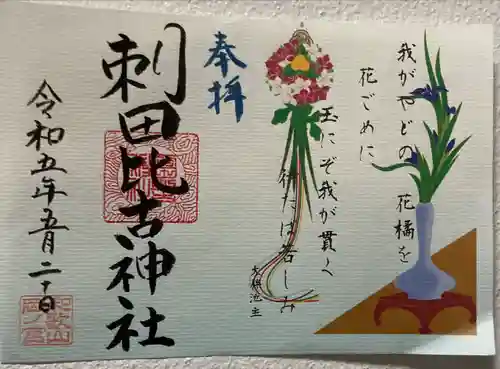 我がやどの 花橘を
花ごめに
玉にぞ我が貫く
待たば苦しみ
大伴池主
奉拝
刺田比古神社
令和五年五月二十日
和歌山
岡ノ宮